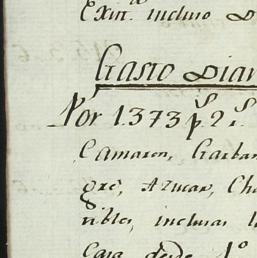 Extt. incluso D
Gasto Diar
Por 1.373 pˢ 2 rˢ
Camaron, Garban
gre, Azucar, Cho
sibles, inclusas l
Casa desde 1º